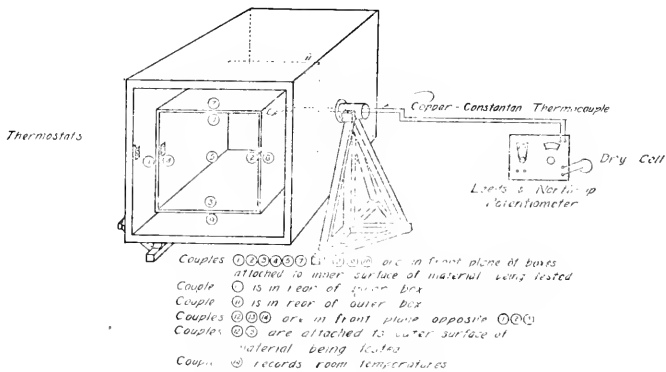 Thermostats
Copper - Constantan Thermocouple
Dry Cell
Leeds & Northrup
Potentiometer
Couples ① ② ③ ④ ⑤ ⑦ are in front plane of boxes
attached to inner surface of material being tested
Couple is in rear of box
Couple ⑪ is in rear of outer box
Couples ⑫ ⑬ ⑭ are in front plane opposite
Couples are attached to outer surface of
material being tested
Couple records room temperatures